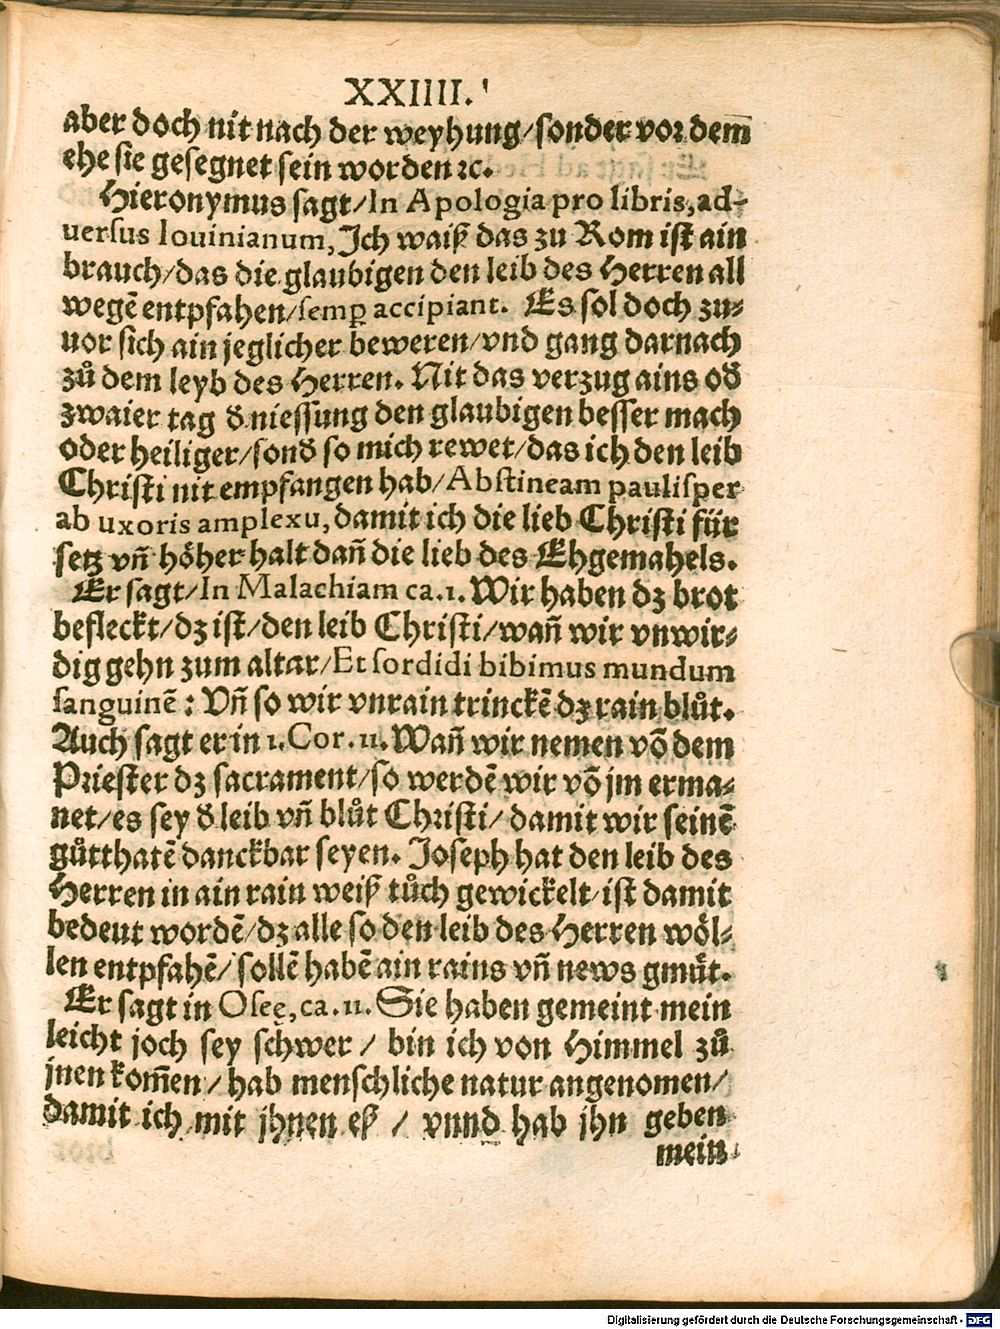 XXIIII.
aber doch nit nach der weyhung/sonder vor dem̄
ehe sie gesegnet sein worden ꝛc.
Hieronymus sagt/In Apologia pro libris, ad-
uersus Iouinianum, Ich waiß das zu Rom ist ain
brauch/das die glaubigen den leib des Herren all
wegē entpfahen/semꝑ accipiant. Es sol doch zu-
uor sich ain jeglicher beweren/vnd gang darnach
zů dem leyb des Herren. Nit das verzug ains oð
zwaier tag ð niessung den glaubigen besser mach
oder heiliger/sonð so mich rewet/das ich den leib
Christi nit empfangen hab/Abstineam paulisper
ab uxoris amplexu, damit ich die lieb Christi für
setz vñ höher halt dañ die lieb des Ehgemahels.
Er sagt/In Malachiam ca.1. Wir haben dz brot
befleckt/dz ist/den leib Christi/wañ wir vnwir-
dig gehn zum altar/Et sordidi bibimus mundum
sanguinē: Vñ so wir vnrain trinckē dz rain blůt.
Auch sagt er in 1.Cor.11. Wañ wir nemen võ dem
Priester dz sacrament/so werdē wir võ jm erma-
net/es sey ð leib vñ blůt Christi/damit wir seinē
gůtthatē danckbar seyen. Joseph hat den leib des
Herren in ain rain weiß tůch gewickelt/ist damit
bedeut wordē/dz alle so den leib des Herren wöl-
len entpfahē/sollē habē ain rains vñ news gmüt.
Er sagt in Oseę, ca.11. Sie haben gemeint mein
leicht joch sey schwer/bin ich von Himmel zů
jnen kom̄en/hab menschliche natur angenomen/
damit ich mit jhnen eß/vnnd hab jhn geben
mein
Digitalisierung gefördert durch die Deutsche Forschungsgemeinschaft - DFG